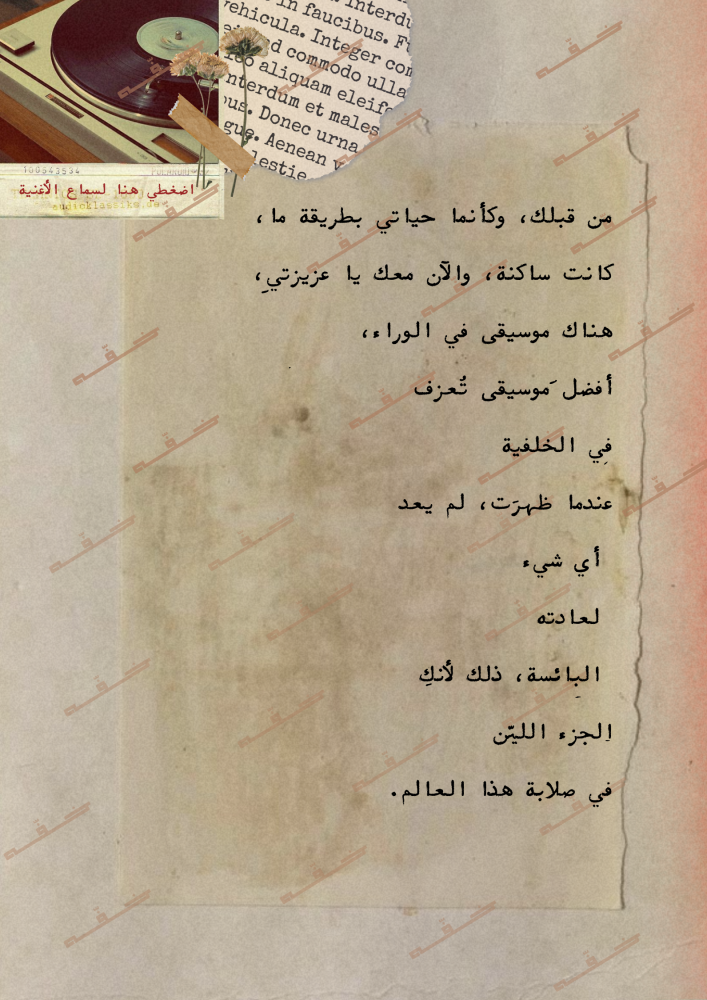 Interdu
in faucibus. Fu
vehicula. Integer con
d commodo ulla
leo aliquam eleife
nterdum et males
us. Donec urna
gue. Aenean v
lestie
100643534
اضغطي هنا لسماع الأغنية
من قبلك، وكأنما حياتي بطريقة ما،
كانت ساكنة، والآن معك يا عزيزتيِ،
هناك موسيقى في الوراء،
أفضل َموسيقى تُعزف
فيِ الخلفية
عندما ظهرَت، لم يعد
أي شيء
لعادته
البائسة، ذلك لأنكِ
الجزء الليّن
في صلابة هذا العالم.